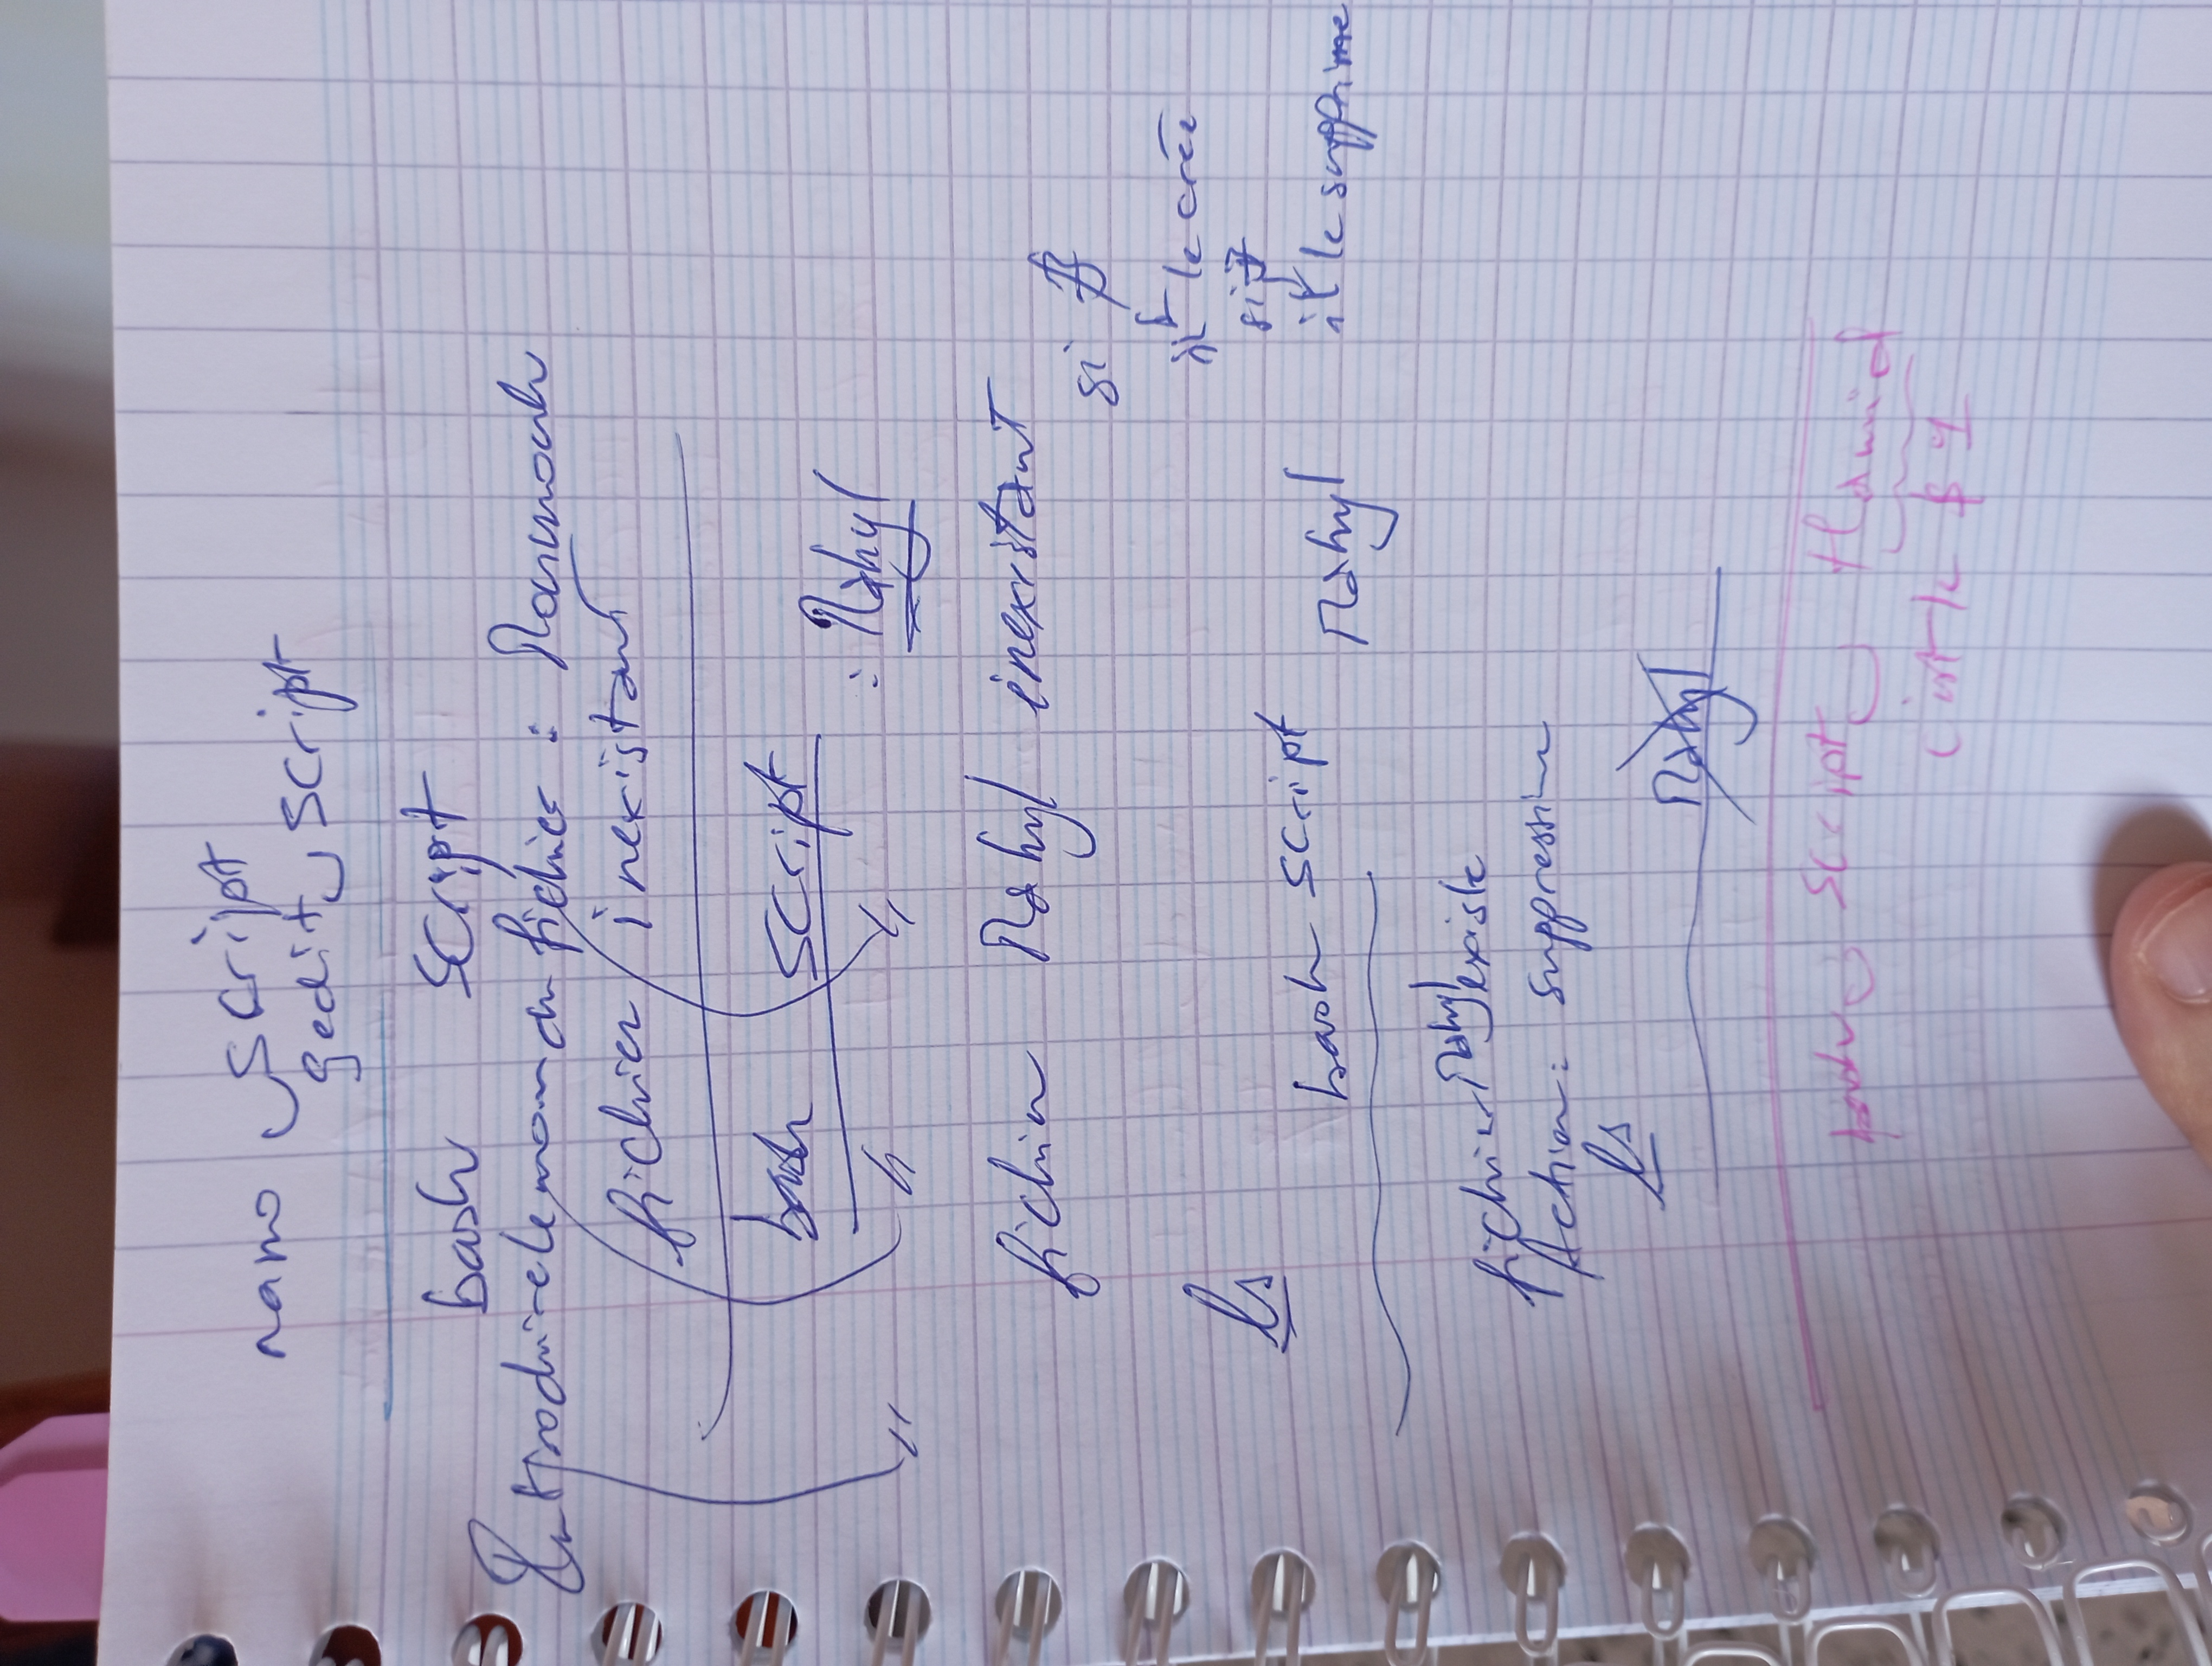 nano script
gedit script
bash script
Introduire le nom du fichier :
fichier inexistant
bash script
" " " : Rahyl
fichier Rahyl inexistant
si ∄
il le crée
ls
si ∃
bash script Rahyl
il le supprime
fichier Rahyl existe
Action : suppression
ls
Rahyl
bash script Hamid
c'est le $1